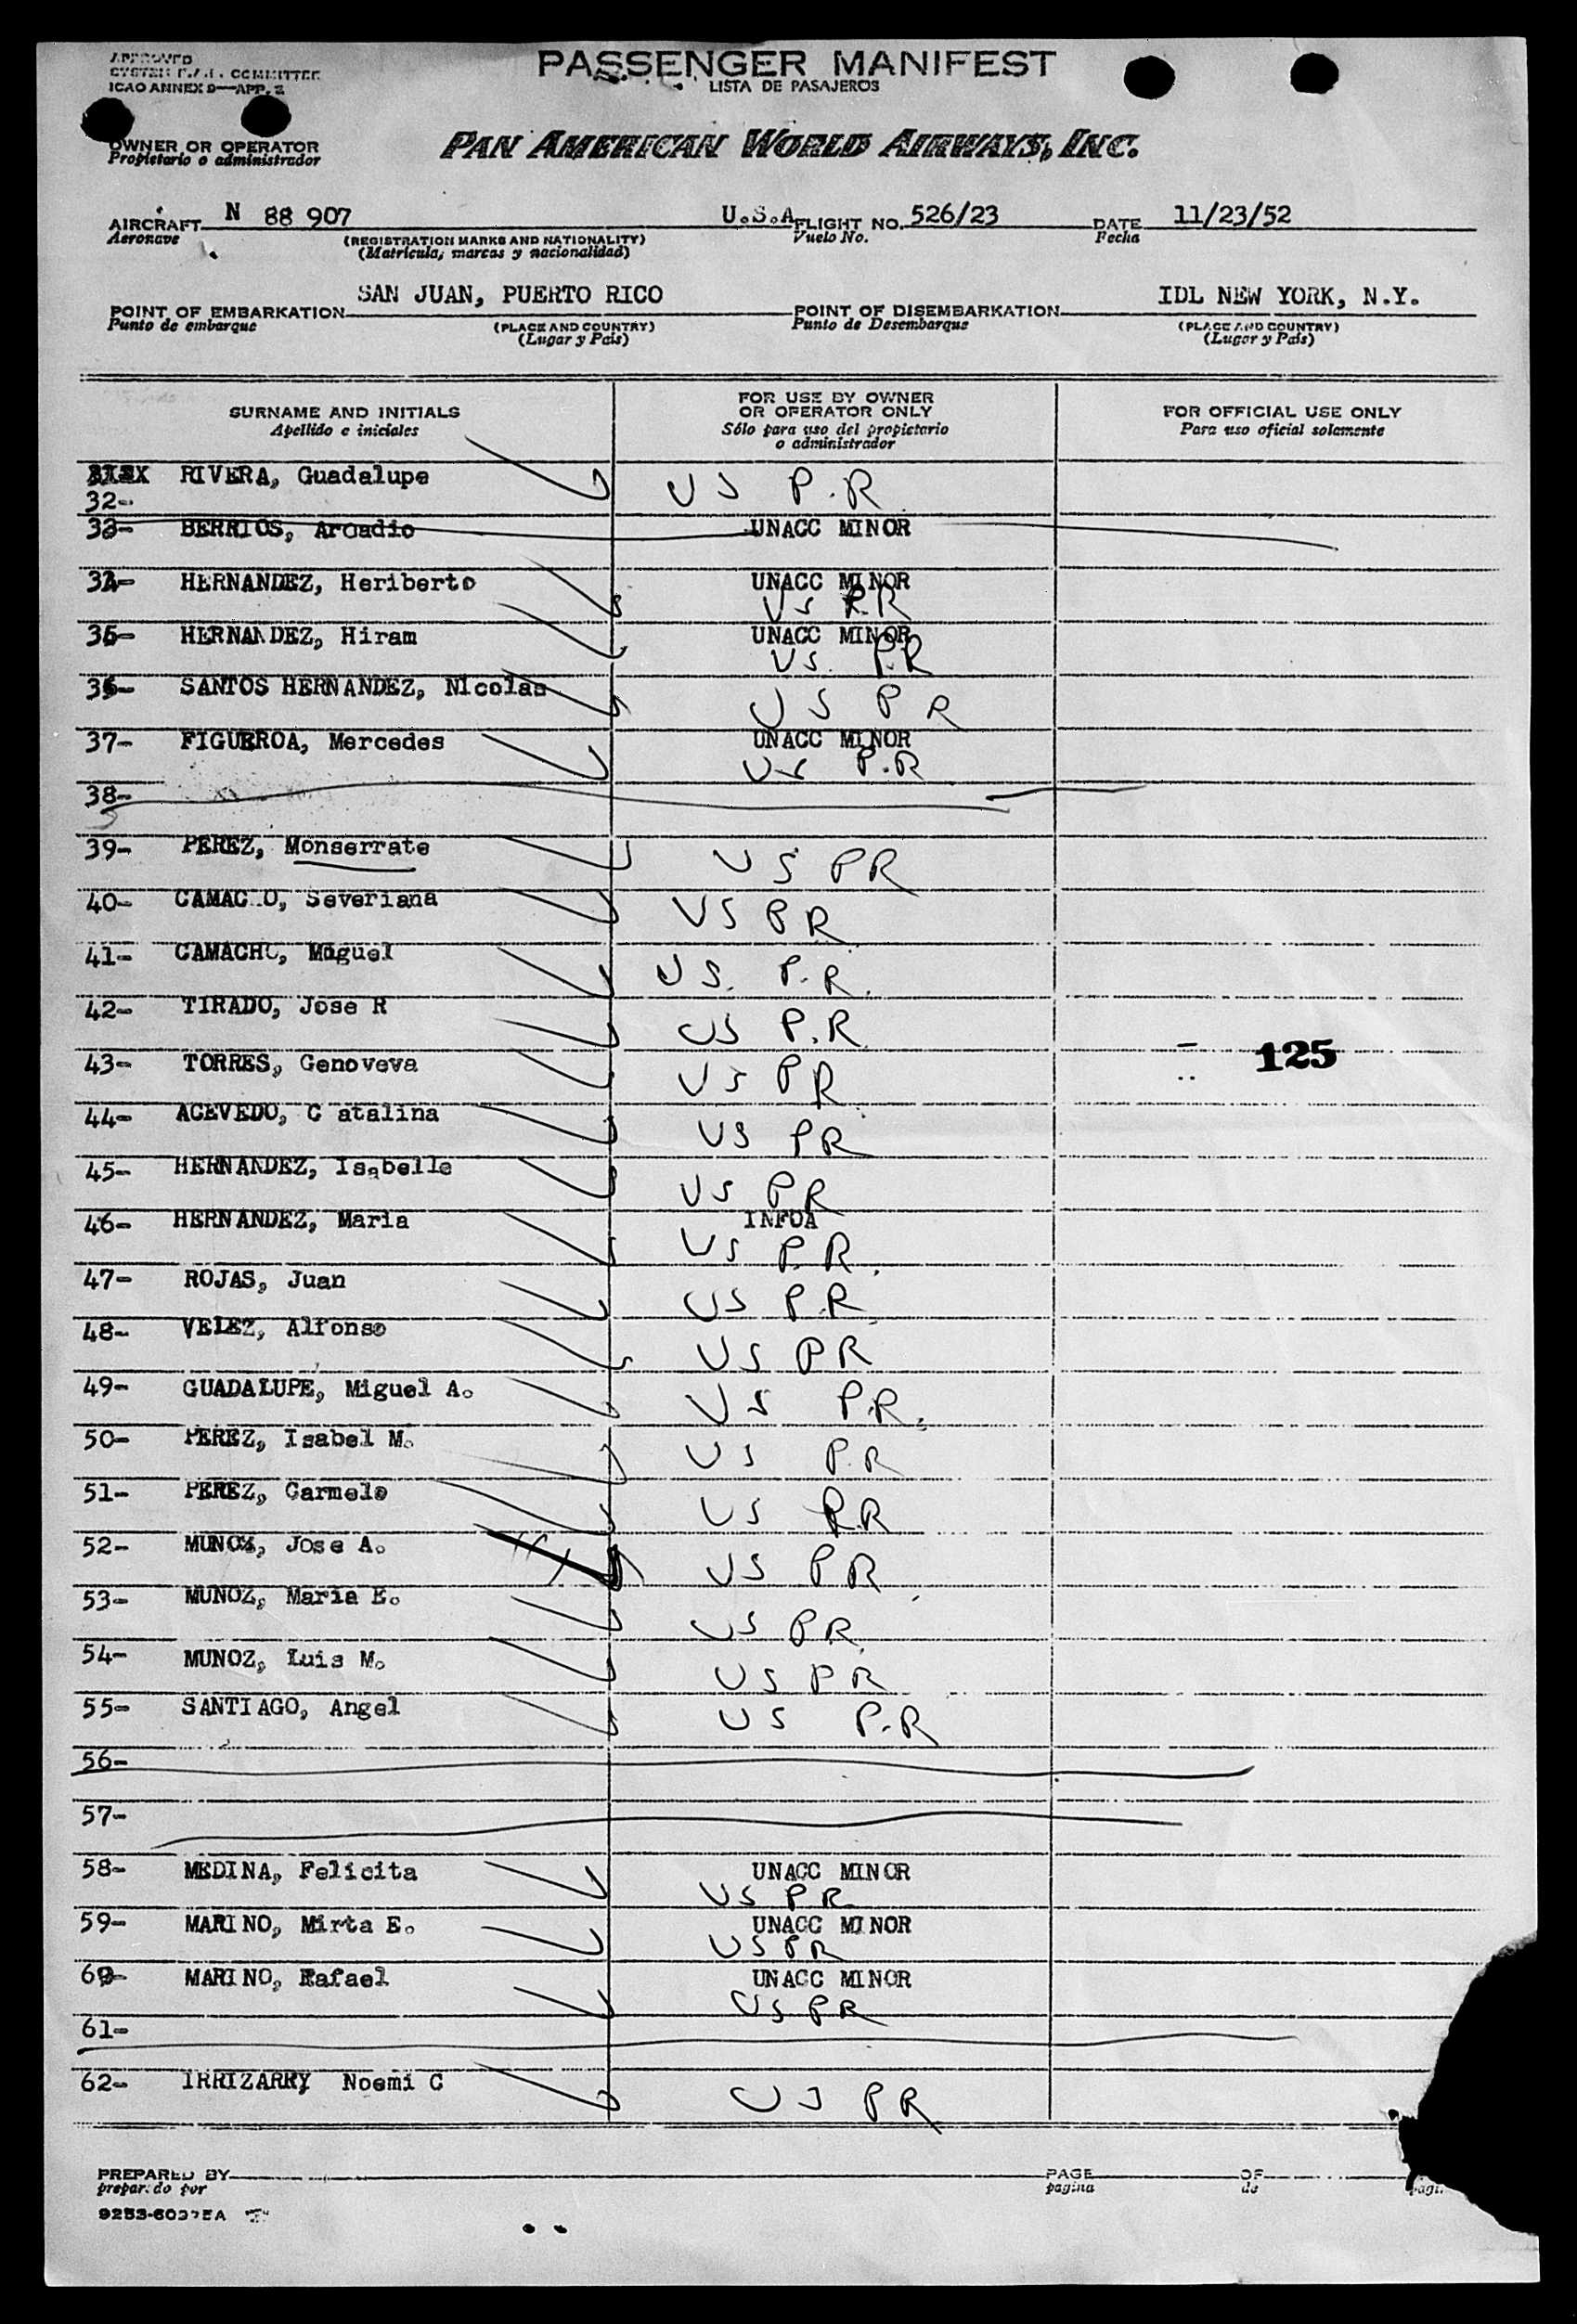 APPROVED
SYSTEM F.A.L. COMMITTEE
ICAO ANNEX 9—APP. 2
PASSENGER MANIFEST
LISTA DE PASAJEROS
OWNER OR OPERATOR
Propietario o administrador
PAN AMERICAN WORLD AIRWAYS, INC.
AIRCRAFT N 88 907 U.S.A FLIGHT NO. 526/23 DATE 11/23/52
Aeronave (REGISTRATION MARKS AND NATIONALITY) Vuelo No. Fecha
(Matricula, marcas y nacionalidad)
POINT OF EMBARKATION SAN JUAN, PUERTO RICO POINT OF DISEMBARKATION IDL NEW YORK, N.Y.
Punto de embarque (PLACE AND COUNTRY) Punto de Desembarque (PLACE AND COUNTRY)
(Lugar y País) (Lugar y País)
SURNAME AND INITIALS
Apellido e iniciales
FOR USE BY OWNER
OR OPERATOR ONLY
Sólo para uso del propietario
o administrador
FOR OFFICIAL USE ONLY
Para uso oficial solamente
RIVERA, Guadalupe US P.R
32-
33- BERRIOS, Arcadio UNACC MINOR
34- HERNANDEZ, Heriberto UNACC MINOR
US P.R
35- HERNANDEZ, Hiram UNACC MINOR
US. P.R
36- SANTOS HERNANDEZ, Nicolas US P R
37- FIGUEROA, Mercedes UNACC MINOR
US P.R
38-
39- PEREZ, Monserrate US PR
40- CAMAC O, Severiana US PR
41- CAMACHO, Miguel US. P.R.
42- TIRADO, Jose R US P.R.
43- TORRES, Genoveva US PR
125
44- ACEVEDO, C atalina US PR
45- HERNANDEZ, Isabelle US PR
46- HERNANDEZ, Maria INFOA
US P.R.
47- ROJAS, Juan US P.R
48- VELEZ, Alfonso US PR
49- GUADALUPE, Miguel A. US P.R.
50- PEREZ, Isabel M. US P.R
51- PEREZ, Carmelo US P.R
52- MUNOZ, Jose A. US PR
53- MUNOZ, Maria E. US PR
54- MUNOZ, Luis M. US PR
55- SANTIAGO, Angel US P.R
56-
57-
58- MEDINA, Felicita UNACC MINOR
US PR
59- MARINO, Mirta E. UNACC MINOR
US PR
60- MARINO, Rafael UNACC MINOR
US PR
61-
62- IRRIZARRY Noemi C US PR
PREPARED BY PAGE OF
preparado por pagina de